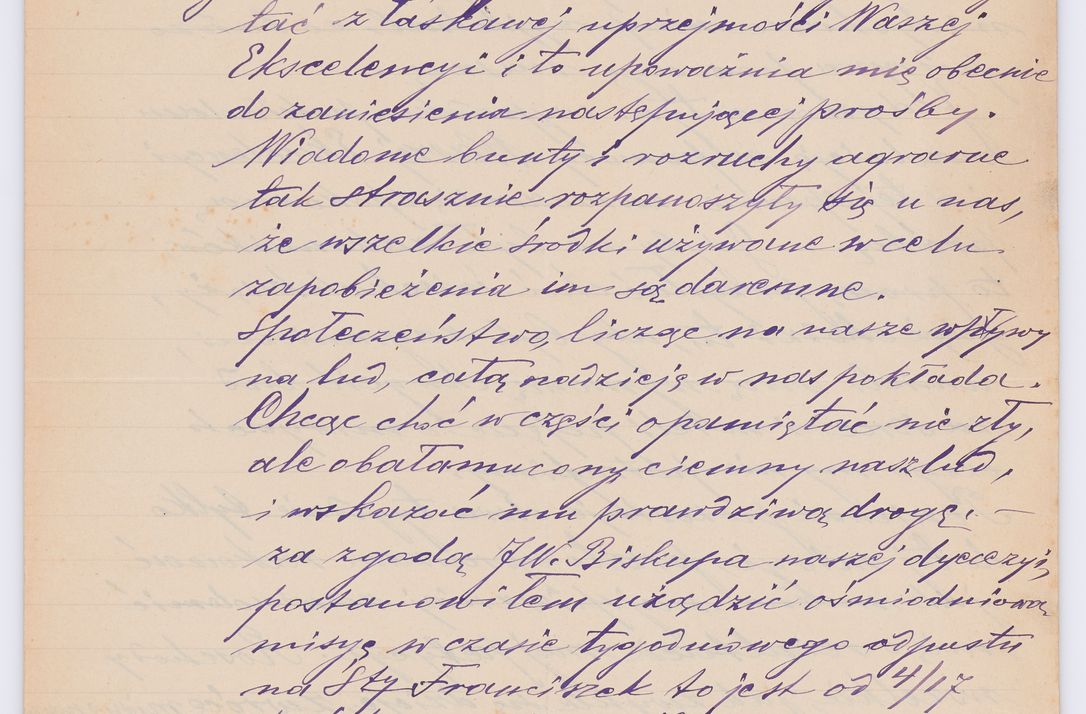 tać z łaskawej uprzejmości Waszej
Ekscelencyi i to upoważnia mię obecnie
do zaniesienia następującej prośby.
Wiadome bunty i rozruchy agrarne
tak strasznie rozpanoszyły się u nas,
że wszelkie środki używane w celu
zapobieżenia im są daremne.
Społeczeństwo, licząc na nasze wpływy
na lud, całą nadzieję w nas pokłada.
Chcąc choć w części opamiętać nie zły,
ale obałamucony, ciemny nasz lud,
i wskazać mu prawdziwą drogę, —
za zgodą JW. Biskupa naszej dyecezyi,
postanowiłem urządzić ośmiodniową
misyę w czasie tygodniowego odpustu
na Sty Franciszek to jest od 4/17